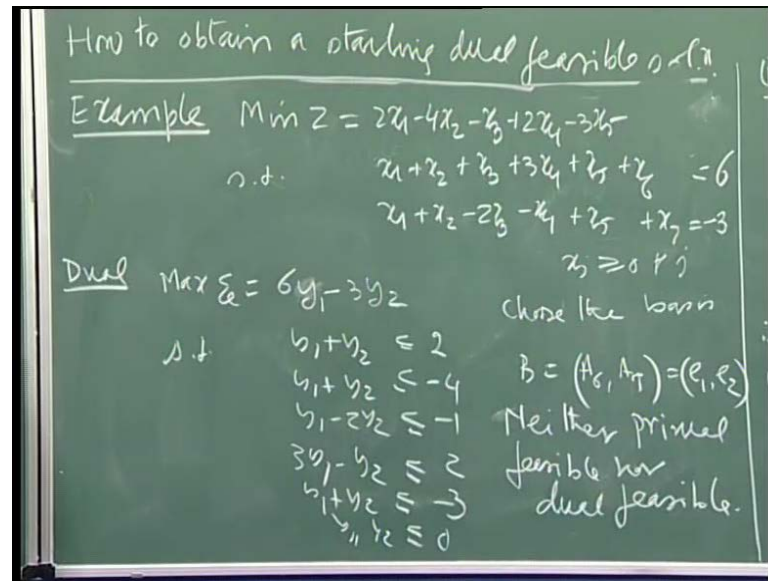 How to obtain a starting dual feasible soln.
Example Min Z = 2x₁-4x₂-x₃+2x₄-3x₅
s.t. x₁+x₂+x₃+3x₄+x₅+x₆ =6
x₁+x₂-2x₃-x₄+x₅ +x₇=-3
xⱼ ≥0 ∀ j
Dual Max = 6y₁-3y₂
s.t y₁+y₂ ≤ 2
y₁+y₂ ≤ -4
y₁-2y₂ ≤ -1
3y₁-y₂ ≤ 2
y₁+y₂ ≤ -3
y₁, y₂ ≤ 0
Chose the basis
B = (A₆, A₇) = (e₁, e₂)
Neither primal
feasible nor
dual feasible.